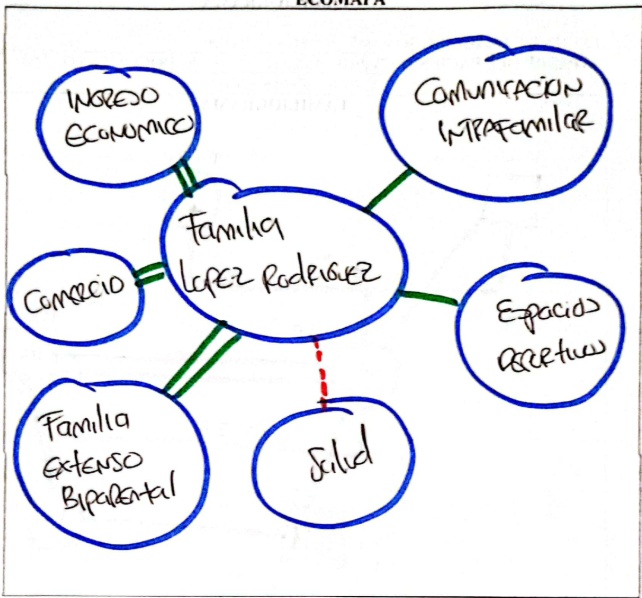 ECOMAPA
INGRESO
ECONOMICO
COMUNICACION
INTRAFAMILIAR
Familia
LOPEZ RODRIGUEZ
COMERCIO
Espacios
Familia
EXTENSO
BIPARENTAL
Salud